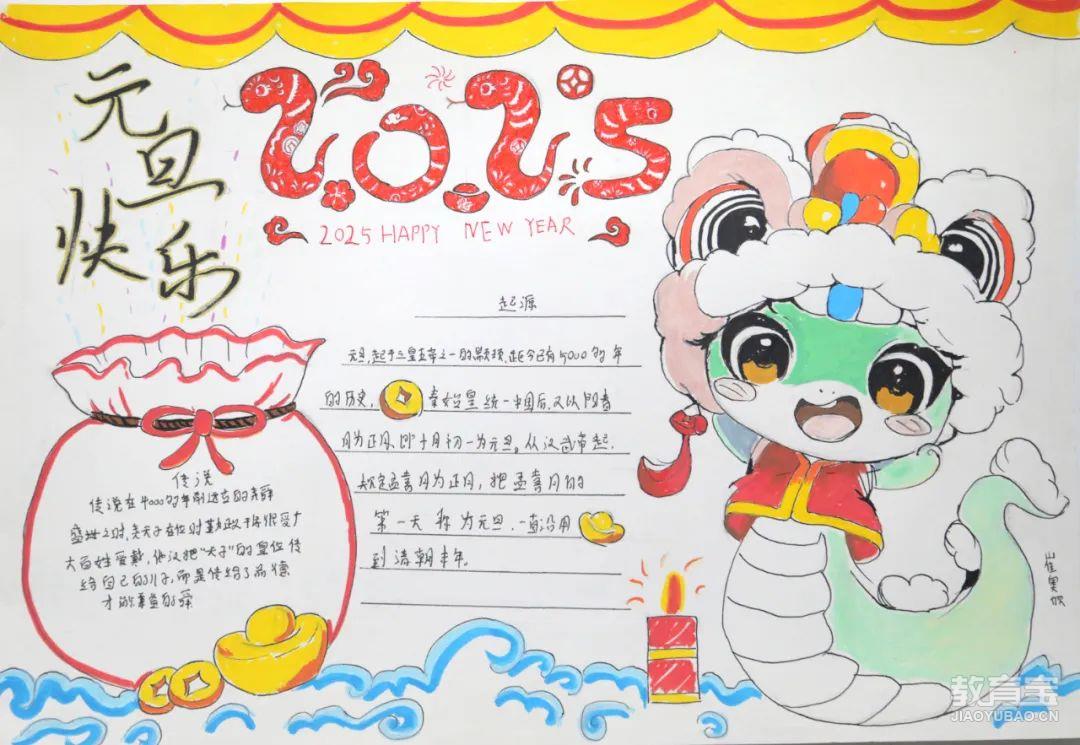 元旦
快乐
2025
2025 HAPPY NEW YEAR
起源
元旦,起于三皇五帝之一的颛顼,距今已有5000多年
的历史,秦始皇统一中国后,又以阴春
月为正月,即十月初一为元旦。从汉武帝起,
规定孟喜月为正月,把孟喜月的
第一天称为元旦,一直沿用
到清朝末年。
传说
传说在4000多年前远古的尧舜
盛世之时,尧天子在位时勤政于民很受广
大百姓爱戴,他没把“天子”的皇位传
给自己的儿子,而是传给了品德
才能兼备的舜
教育宝
JIAOYUBAO.CN